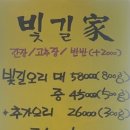 빛길家
간장/고추장/반반(+2000)
빛길오리 대 58000(800g)
중 45000(500g)
+추가오리 26000(300g)